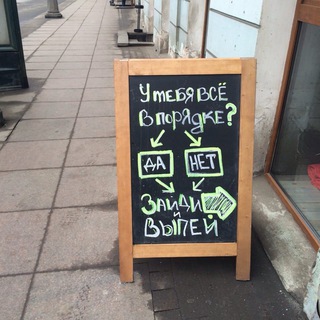 У ТЕБЯ ВСЁ
В ПОРЯДКЕ?
ДА НЕТ
ЗАЙДИ
И
ВЫПЕЙ